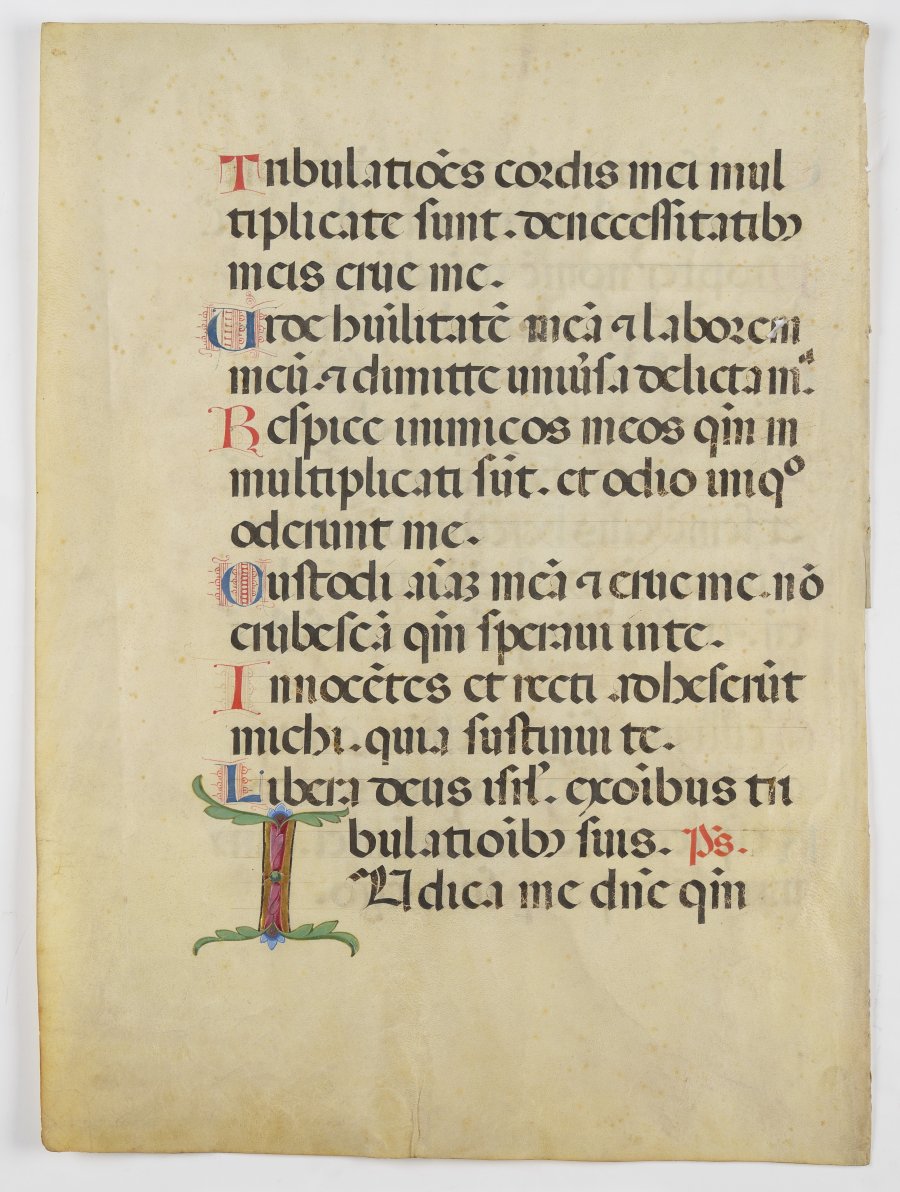 Tribulatiões cordis mei mul
tiplicate sunt. de neccessitatibꝰ
meis erue me.
Uide hũilitatẽ meã ⁊ laborem
meũ. ⁊ dimitte uniũsa delicta mᵃ.
Respice inimicos meos qm̃ m
multiplicati sũt. et odio iniqº
oderunt me.
Custodi aĩaꝫ meã ⁊ erue me. nõ
erubescã qm̃ speraui in te.
Innocẽtes et recti adheserũt
michi. quia sustinui te.
Libera deus isrl̃. ex oĩbus tri
bulatioĩbꝰ suis. Ps.
IUdica me dñe qm̃